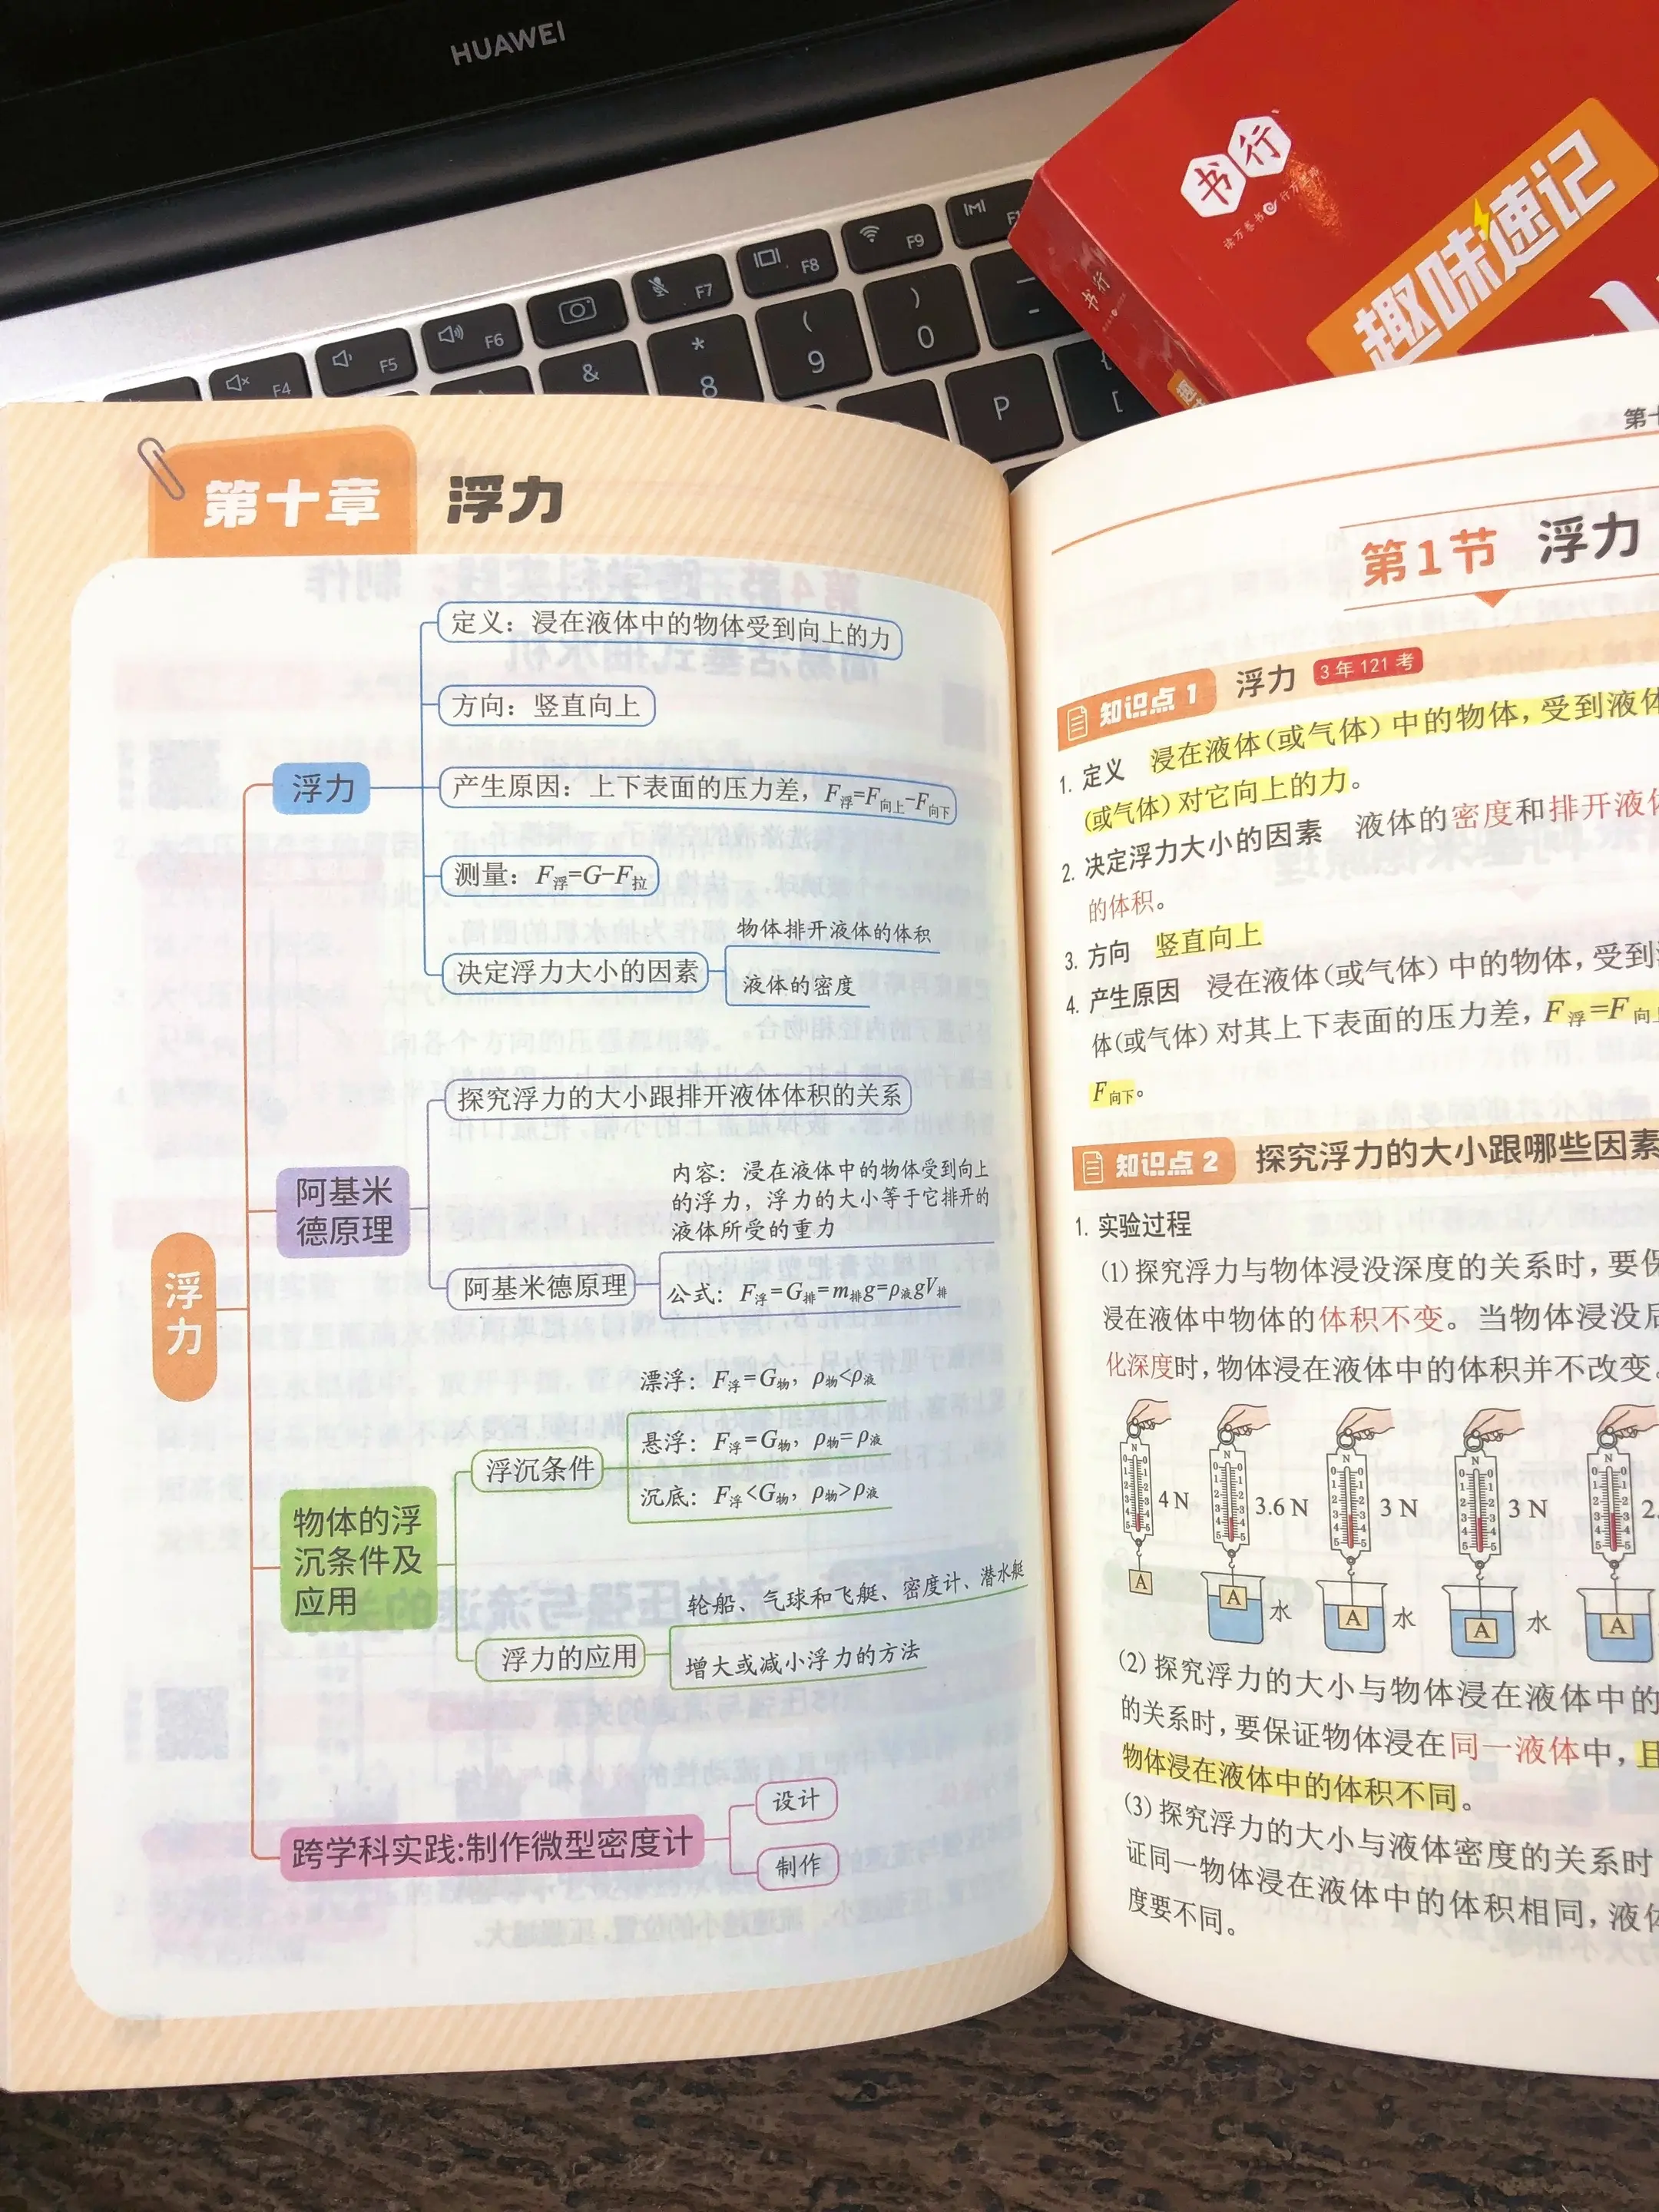 HUAWEI
F4
F5
F6
F7
F8
F9
&
*
8
(
9
)
0
-
P
[
{
书行
读万卷书 行万里路
趣味速记
书行
第十章 浮力
浮力
浮力
定义：浸在液体中的物体受到向上的力
方向：竖直向上
产生原因：上下表面的压力差，F浮=F向上-F向下
测量：F浮=G-F拉
决定浮力大小的因素
物体排开液体的体积
液体的密度
阿基米
德原理
探究浮力的大小跟排开液体体积的关系
阿基米德原理
内容：浸在液体中的物体受到向上
的浮力，浮力的大小等于它排开的
液体所受的重力
公式：F浮=G排=m排g=ρ液gV排
物体的浮
沉条件及
应用
浮沉条件
漂浮：F浮=G物，ρ物<ρ液
悬浮：F浮=G物，ρ物=ρ液
沉底：F浮<G物，ρ物>ρ液
浮力的应用
轮船、气球和飞艇、密度计、潜水艇
增大或减小浮力的方法
跨学科实践:制作微型密度计
设计
制作
第十
第1节 浮力
知识点1 浮力 3年121考
1. 定义 浸在液体(或气体)中的物体，受到液体
(或气体)对它向上的力。
2. 决定浮力大小的因素 液体的密度和排开液体
的体积。
3. 方向 竖直向上
4. 产生原因 浸在液体(或气体)中的物体，受到
体(或气体)对其上下表面的压力差，F浮=F向上
F向下。
知识点2 探究浮力的大小跟哪些因素
1. 实验过程
(1)探究浮力与物体浸没深度的关系时，要保
浸在液体中物体的体积不变。当物体浸没后
化深度时，物体浸在液体中的体积并不改变。
4 N
3.6 N
3 N
3 N
2.
A
A
水
A
水
A
水
A
(2)探究浮力的大小与物体浸在液体中的
的关系时，要保证物体浸在同一液体中，且
物体浸在液体中的体积不同。
(3)探究浮力的大小与液体密度的关系时
证同一物体浸在液体中的体积相同，液体
度要不同。